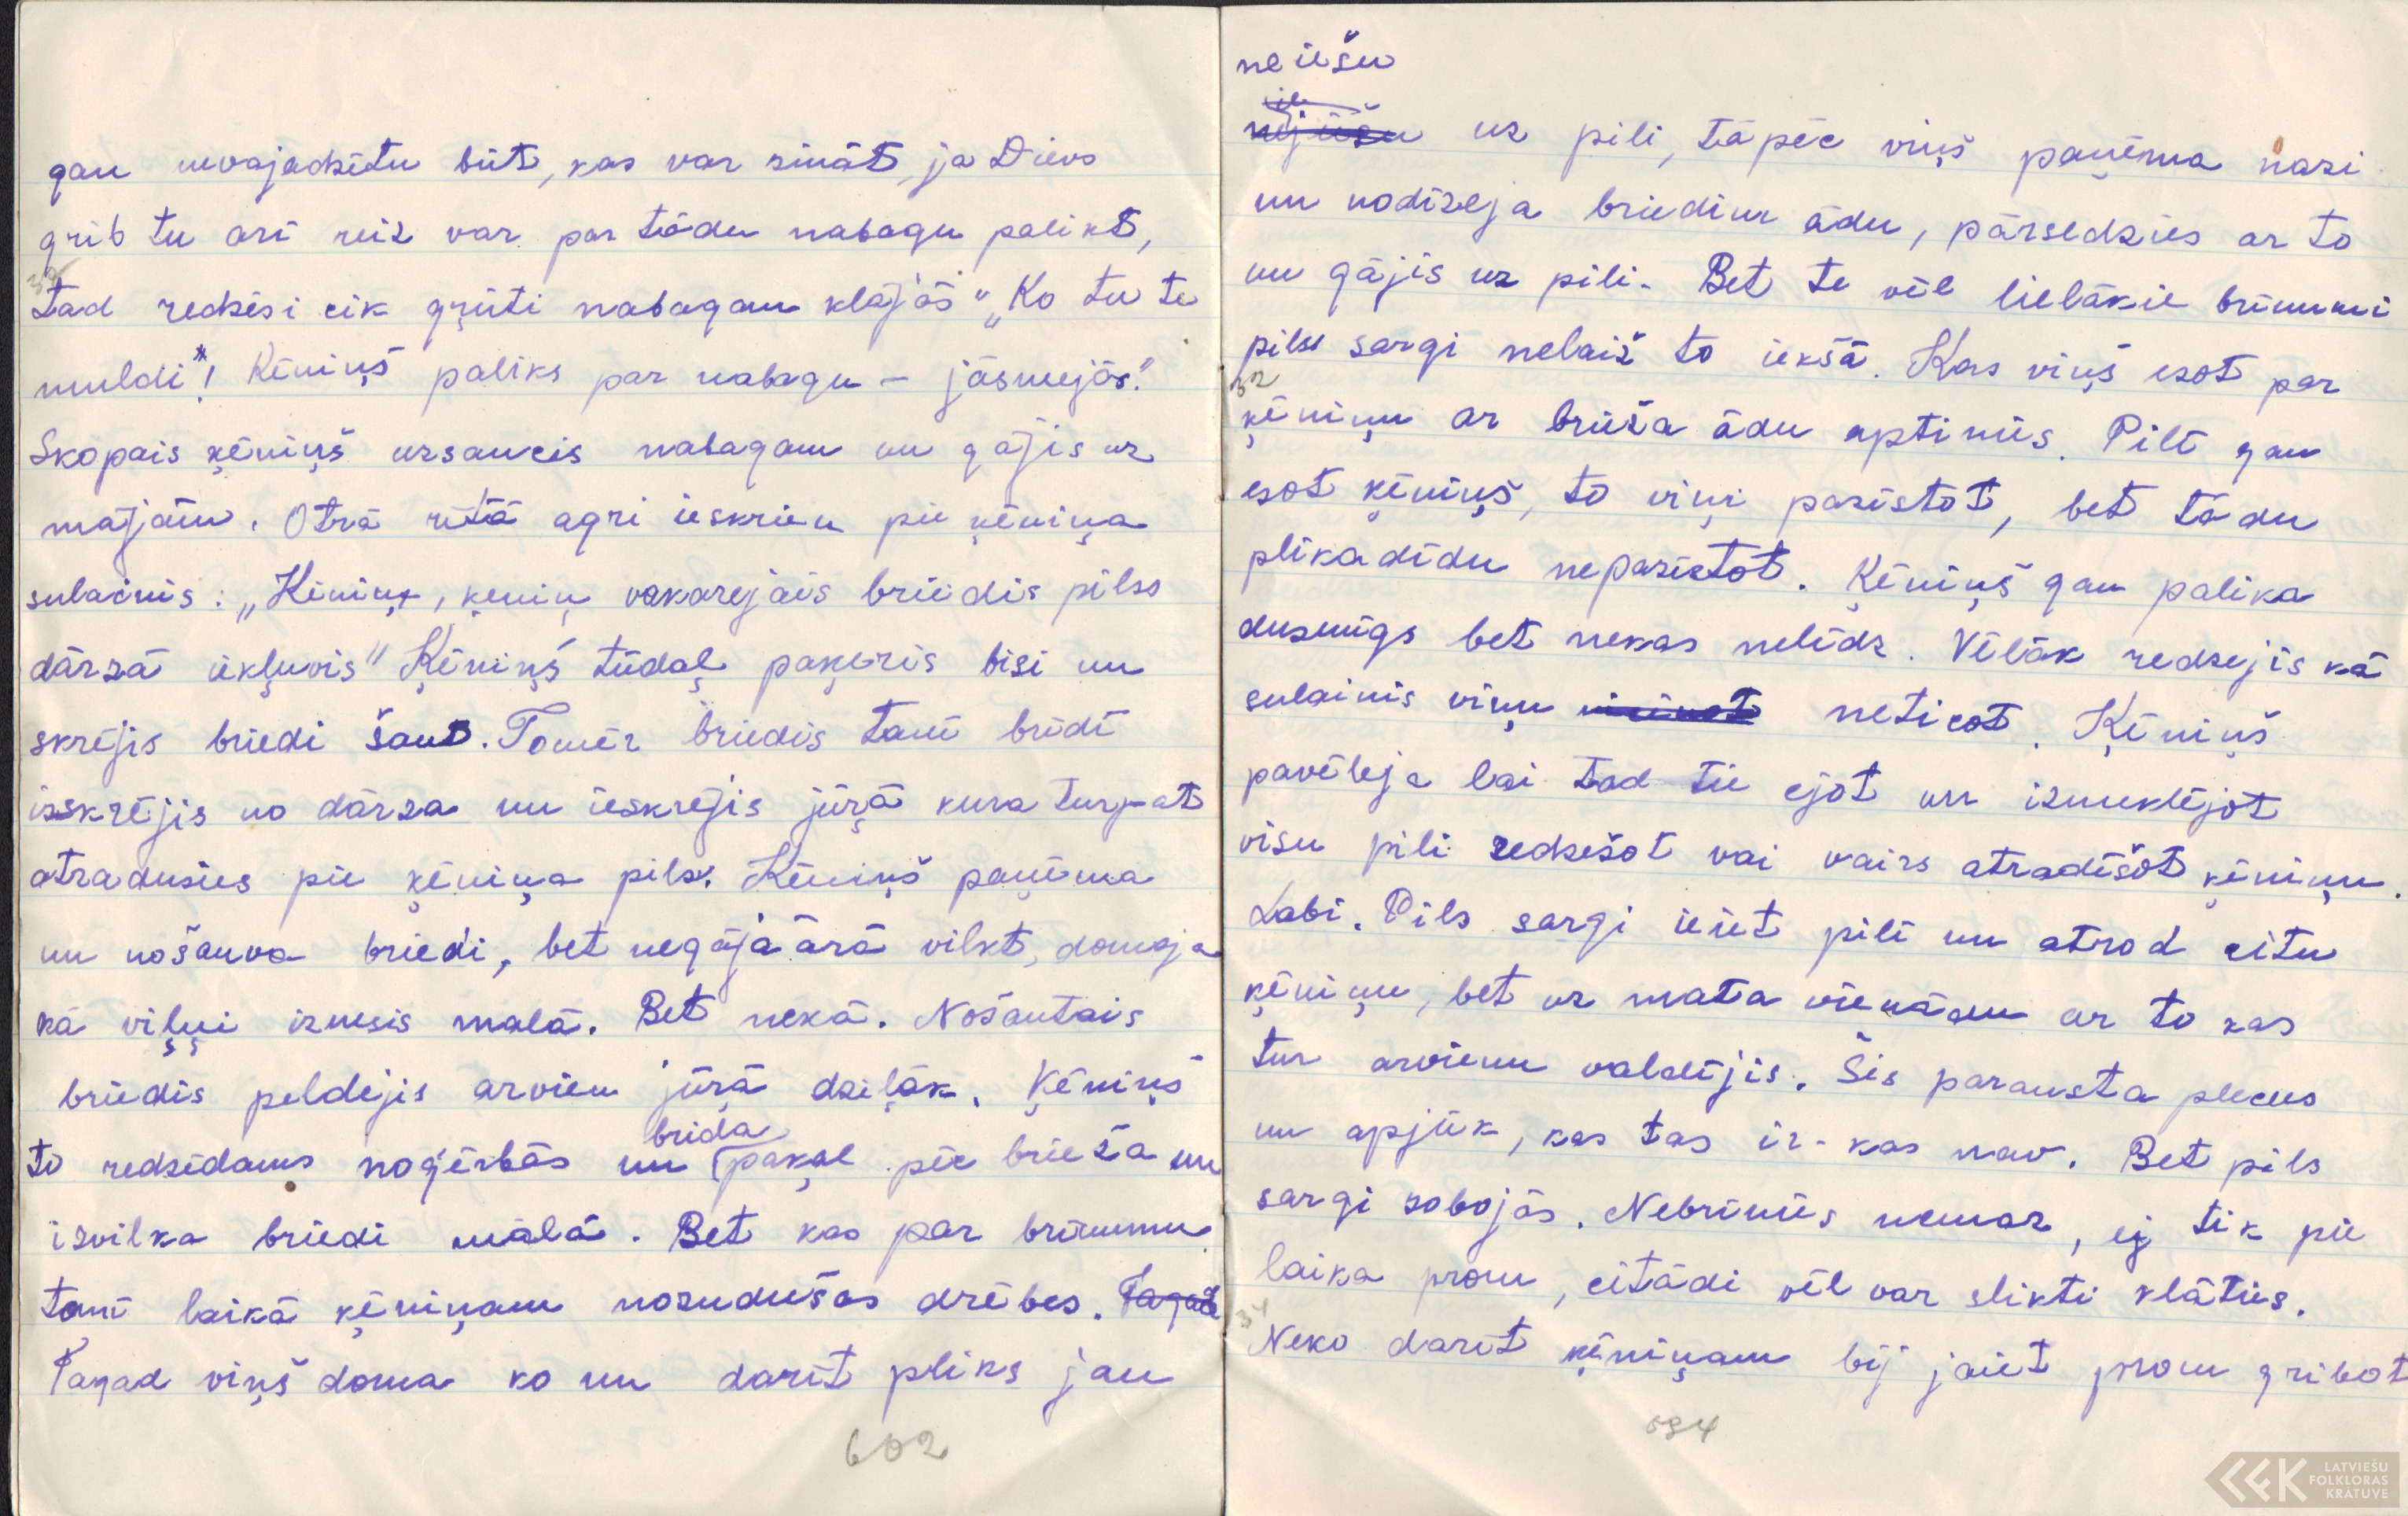 gan nevajadzētu būt, kas var zināt, ja Dievs
grib tu arī reiz var par tādu nabagu palikt,
tad redzēsi cik grūti nabagam klājās" „Ko tu te
muldi"! Ķēniņš paliks par nabagu – jāsmejās."
Skopais ķēniņš uzsaucis nabagam un gājis uz
mājām. Otrā rītā agri ieskrien pie ķēniņa
sulainis: „Ķēniņ, ķēniņ vakarējais briedis pilss
dārzā iekļuvis" Ķēniņš tūdaļ paķēris bisi un
skrējis briedi šaut. Tomēr briedis tanī brīdī
izskrējis no dārza un ieskrējis jūŗā kura turpat
atradusies pie ķēniņa pils. Ķēniņš paņēma
un nošauva briedi, bet negāja ārā vilkt, domaja
ka viļņi iznesīs malā. Bet nekā. Nošautais
briedis peldējis arvien jūŗā dziļāk. Ķēniņš
brida
to redzēdams noģērbās un pakaļ pēc brieža un
izvilka briedi malā. Bet kas par brīnumu
tanī laikā ķēniņam nozudušas drēbes. Tagad
Tagad viņš doma ko nu darīt pliks jau
602
neiešu
uz pili, tāpēc viņš paņēma nazi
un nodīzeja briedim ādu, pārsedzies ar to
un gājis uz pili. Bet te vēl lielākie brīnumi
pilss sargi nelaiž to iekšā. Kas viņš esot par
32
ķēniņu ar brieža ādu aptinies. Pilī gan
esot ķēniņš, to viņi pazīstot, bet tādu
plikadīdu nepazīstot. Ķēniņš gan palika
dusmīgs bet nekas nelīdz. Vēlāk redzejis kā
sulainis viņu neticot. Ķēniņš
pavēleja lai tad tie ejot un izmeklējot
visu pili redzešot vai vairs atradīšot ķēniņu.
Labi. Pils sargi ieiet pilī un atrod citu
ķēniņu, bet uz mata vienādu ar to kas
tur arvienu valdījis. Šis parausta plecus
un apjūk, kas tas ir - kas nav. Bet pils
sargi zobojās. Nebrīnies nemaz, ej tik pie
laika prom, citādi vēl var slikti klāties.
34
Neko darīt ķēniņam bij jaiet prom gribot
594
LATVIEŠU
FOLKLORAS
KRĀTUVE